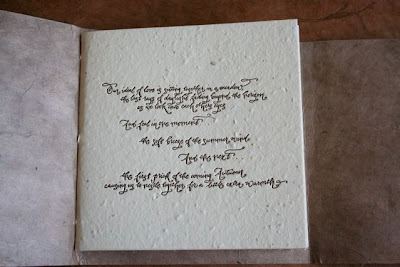 Our ideal of love is sitting together in a meadow,
the last rays of daylight fading beyond the horizon
as we look into each others eyes
And feel in one moment
the soft breeze of the summer wind
And the next...
the first prink of the coming Autumn
causing us to nestle together for a little extra warmth